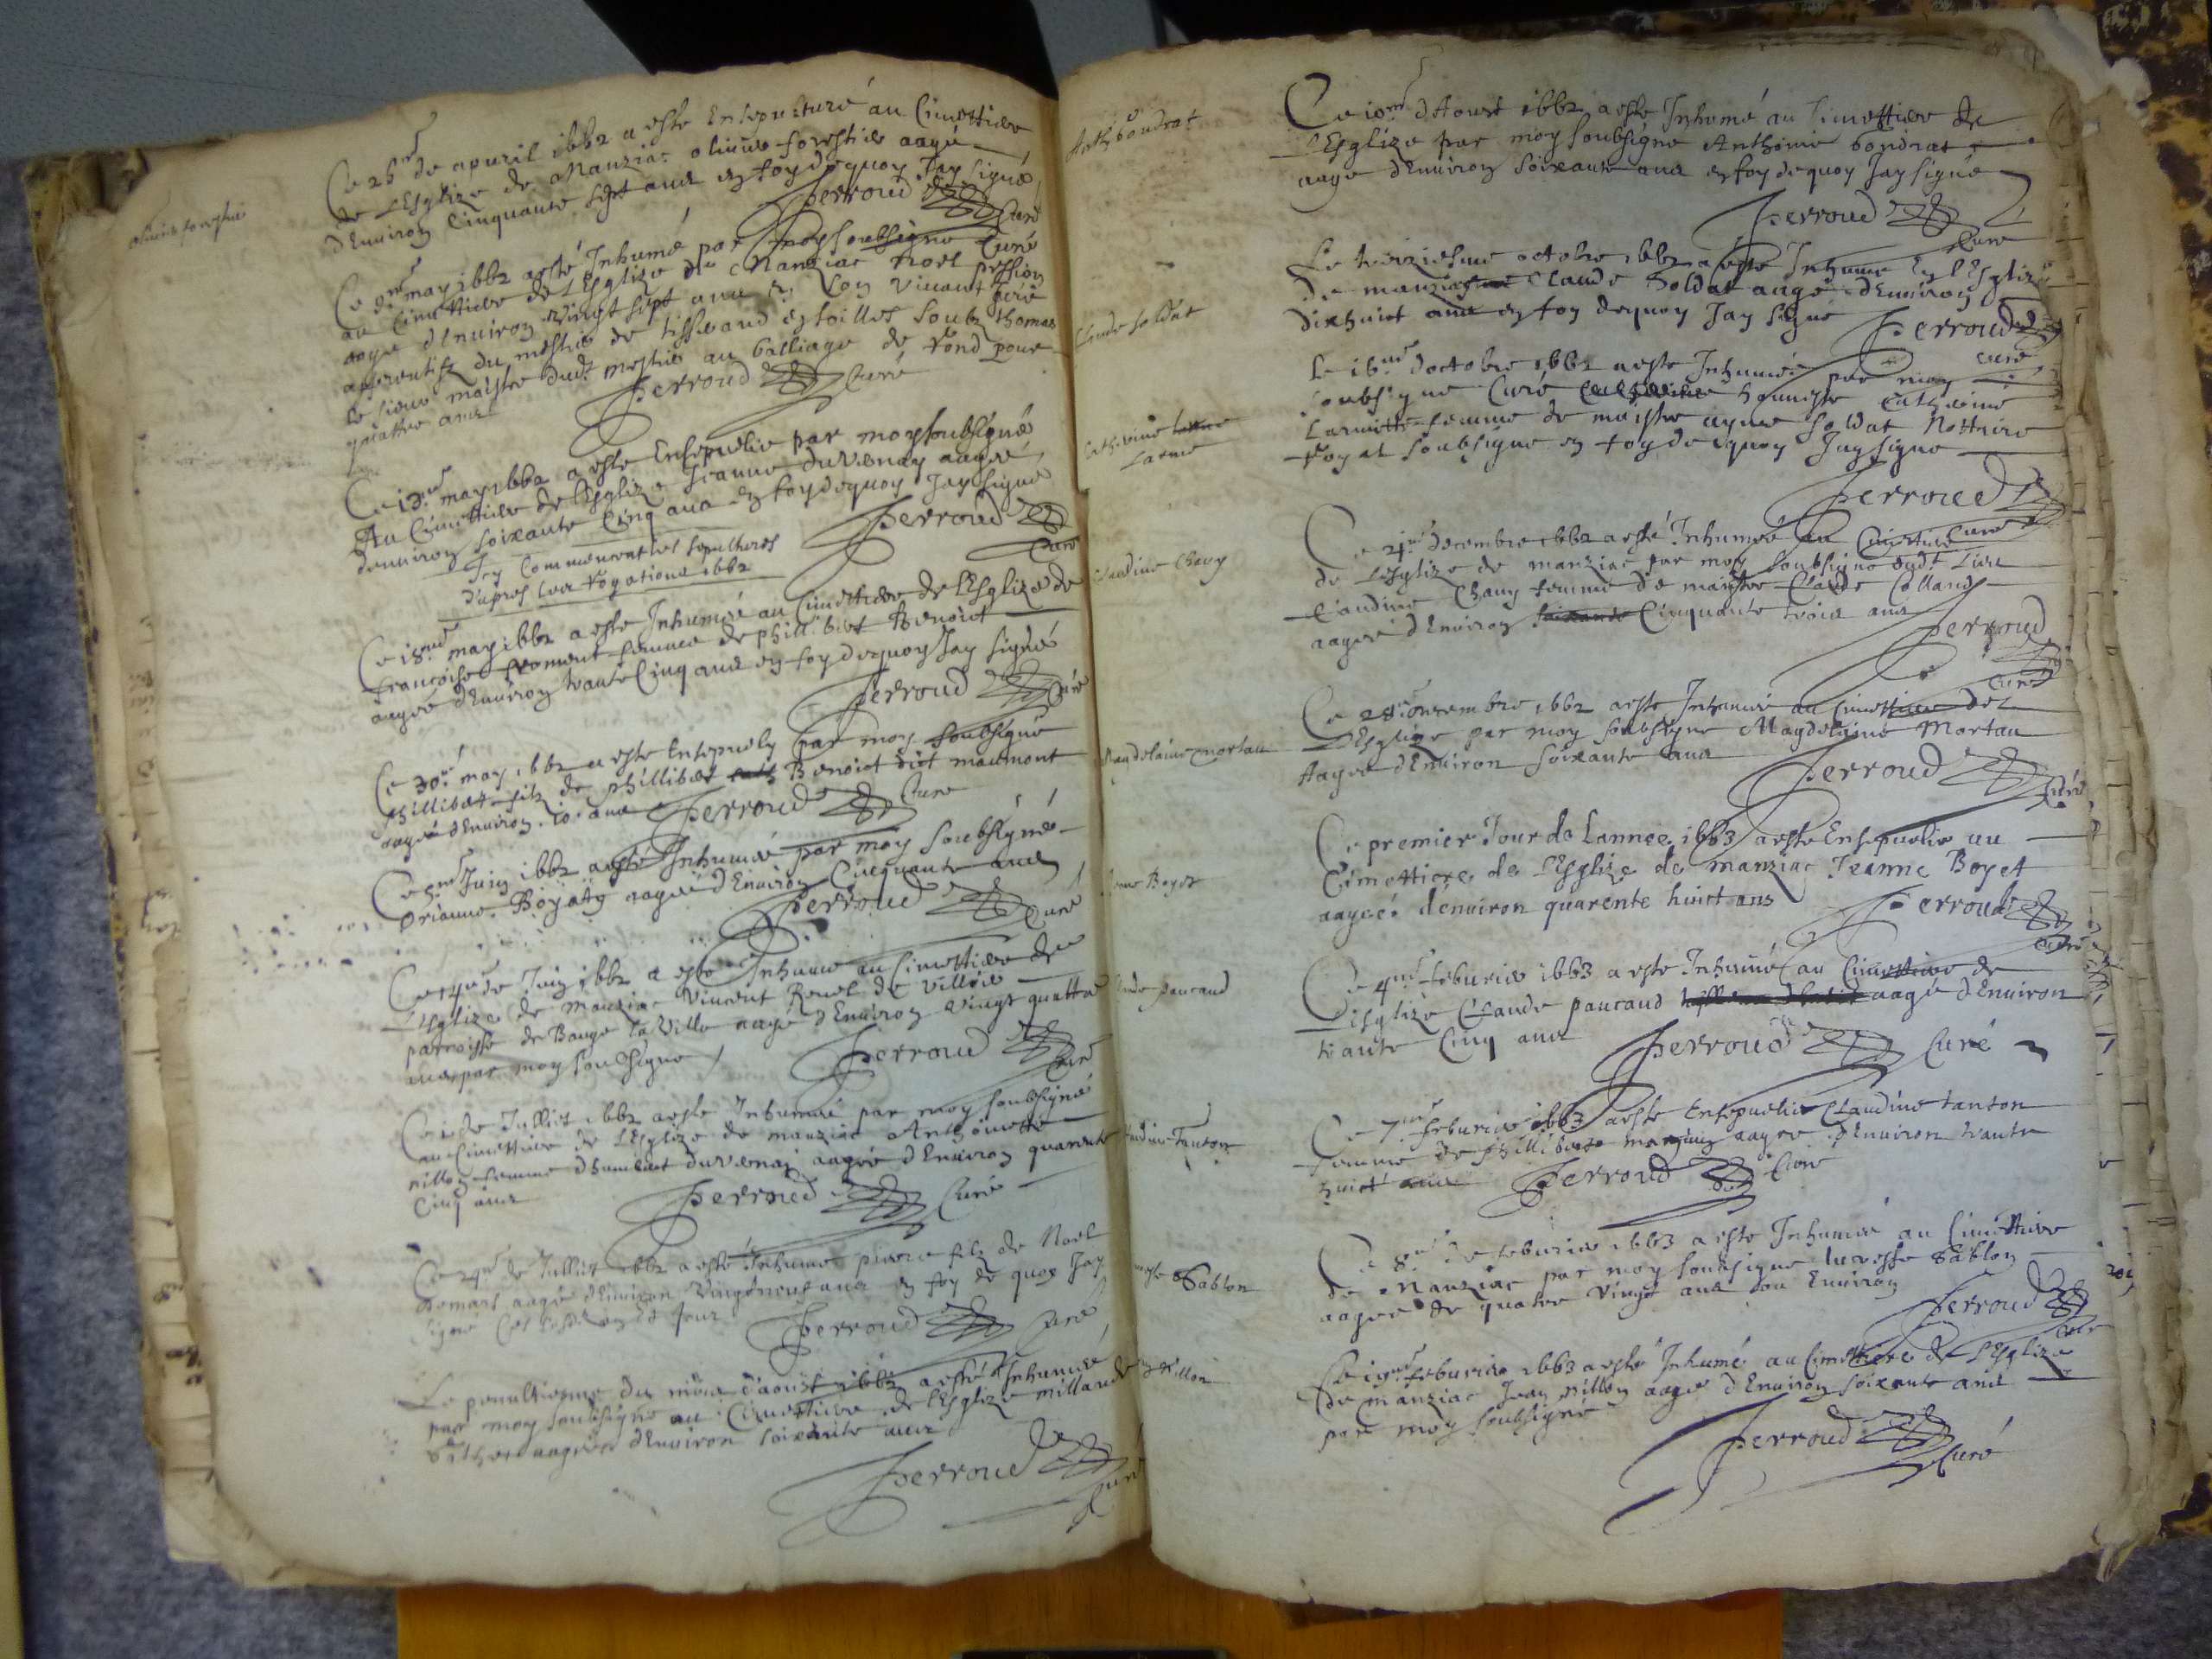 Ce 26me de apvril 1662 a esté Ensepulturé au Cimettiere
de L'Esglize de Manziac olivier forestier aagé
d'Environ Cinquante sept ans en foy de quoy Jay signé
Perroud Curé
olivier forestier
Ce 9me may 1662 a esté Inhumé par moy soubsigné Curé
au Cimettiere de L'Esglize de Manziac Noel
aagé d'Environ vingt sept ans En son vivant
apprentifz du mestier de tisserand en toilles soubz thomas
le sieur maistre dudt mestier au balliage de pour
quattre ans
Perroud Curé
Ce 13me may 1662 a esté Ensepvelie par moy soubsigné
Au Cimettiere de L'Esglize Jeanne duvernay aagée
denviron soixante Cinq ans en foy de quoy Jay signé
Perroud Curé
Icy Commencent les sepultures
d'apres les rogations 1662
Ce 18me may 1662 a esté Inhumée au Cimettiere de L'Esglize de
francoise froment femme de phillibert Benoict
aagée d'Environ trante Cinq ans en foy de quoy Jay signé
Perroud Curé
Ce 30me may 1662 a esté Ensepvely par moy soubsigné
phillibert filz de phillibert Benoict dict maumont
aagé d'Environ 10 ans Perroud Curé
Ce 5me Juin 1662 a esté Inhumée par moy soubsigné
aagée d'Environ Cinquante ans
Perroud Curé
Ce 14me de Juin 1662 a esté Inhumé au Cimettiere de
L'Esglize de Manziac Vincent Revel de
parroisse de Baugé la Ville aagé d'Environ vingt quattre
ans par moy soubsigné
Perroud Curé
Ce de Juillet 1662 a esté Inhumée par moy soubsigné
au Cimettiere de L'Esglize de manziac Anthoinette
nillon femme d'humbert duvernai aagée d'Environ quarante
Cinq ans Perroud Curé
Ce 24me de Juillet 1662 a esté Inhumé pierre filz de Noel
aagé d'Environ Vingt neuf ans en foy de quoy Jay
signé
Perroud Curé
Le penultiesme du mois d'aoust 1662 a esté Inhumée
par moy soubsigné au Cimettiere de L'Esglize
aagée d'Environ soixante ans
Perroud Curé
Anth. bondrat
Ce 10me d'Aoust 1662 a esté Inhumé au Cimettiere de
L'Esglize par moy soubsigné Anthoine bondrat
aagé d'Environ soixante ans en foy de quoy Jay signé
Perroud Curé
Claude soldat
Le treiziesme octobre 1662 a esté Inhumé En l'Esglize
de manziac Claude Soldat aagé d'Environ
dixhuict ans en foy de quoy Jay signé
Perroud Curé
Catherine
Larme
Le 16me d'octobre 1662 a esté Inhumée par moy
soubsigné Curé honneste Catherine
femme de maistre aymé Soldat Nottaire
royal soubsigné en foy de quoy Jay signé
Perroud Curé
Claudine Chavy
Ce 21me decembre 1662 a esté Inhumée au Cimettiere
de L'Esglize de manziac par moy soubsigné
Claudine Chavy femme de maistre Claude Colland
aagée d'Environ Cinquante trois ans
Perroud Curé
Magdelaine mortau
Ce 28 1662 a esté Inhumée au Cimettiere de
L'Esglize par moy soubsigné Magdelaine Mortau
Aagée d'Environ soixante ans
Perroud Curé
Jeanne Boyet
Ce premier Jour de Lannee 1663 a esté Ensepvelie au
Cimettiere de L'Esglize de manziac Jeanne Boyet
aagée denviron quarente huict ans
Perroud Curé
Claude paucaud
Ce 4me feburier 1663 a esté Inhumé au Cimettiere de
L'Esglize Claude paucaud aagé d'Environ
trante Cinq ans
Perroud Curé
Claudine Tanton
Ce 7me feburier 1663 a esté Ensepvelie Claudine tanton
femme de phillibert aagée d'Environ trante
huict ans Perroud Curé
Sablon
Ce 8me de feburier 1663 a esté Inhumée au Cimettiere
de Manziac par moy soubsigné Sablon
aagée de quatre vingt ans ou Environ
Perroud Curé
nillon
Ce 19me feburier 1663 a esté Inhumé au Cimettiere de L'Esglize
de Manziac Jean nillon aagé d'Environ soixante ans
par moy soubsigné
Perroud Curé